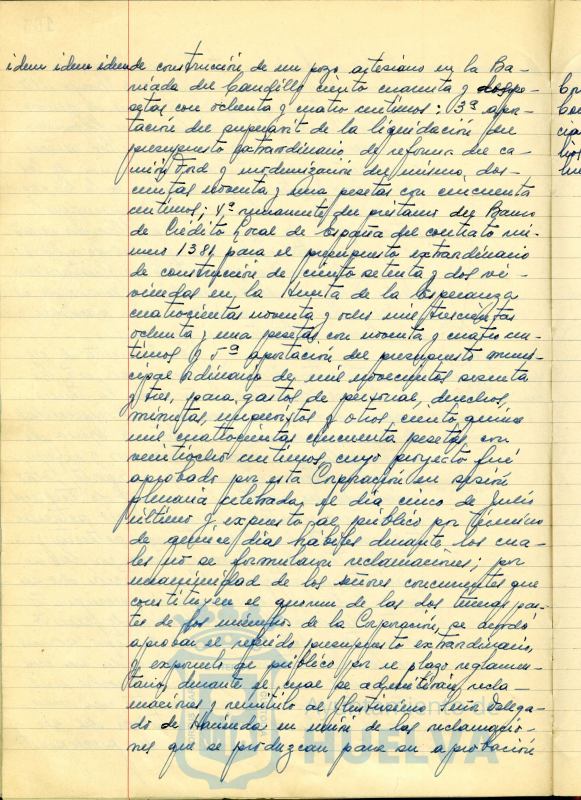 idem idem idem de construcción de un pozo artesiano en la Ba-
rriada del Caudillo ciento cuarenta y dos pe-
setas con ochenta y cuatro centimos; 3ª apor-
tación del superavit de la liquidación del
presupuesto extraordinario de reforma del ca-
mión Ford y modernización del mismo, dos-
cientas noventa y una pesetas con cincuenta
centimos; 4ª remanente del préstamo del Banco
de Crédito Local de España del contrato nú-
mero 1381 para el presupuesto extraordinario
de construcción de ciento setenta y dos vi-
viendas en la Huerta de la Esperanza
cuatrocientas noventa y ocho mil trescientas
ochenta y una pesetas con noventa y cuatro cen-
timos y 5ª aportación del presupuesto muni-
cipal ordinario de mil novecientos sesenta
y tres, para gastos de personal, derechos,
minutas, imprevistos y otros, ciento quince
mil cuatrocientas cincuenta pesetas, con
veintiocho centimos, cuyo proyecto fué
aprobado por esta Corporación en sesión
plenaria celebrada el día cinco de Julio
último y expuesto al público por término
de quince días hábiles durante los cua-
les no se formularon reclamaciones; por
unanimidad de los señores concurrentes que
constituyen el quorum de las dos terceras par-
tes de los miembros de la Corporación, se acordó
aprobar el referido presupuesto extraordinario,
y exponerlo al público por el plazo reglamen-
tario, durante el cual se admitirán recla-
maciones y remitirlo al Ilustrísimo Señor Delega-
do de Hacienda, en unión de las reclamacio-
nes que se produzcan para su aprobación
HUELVA